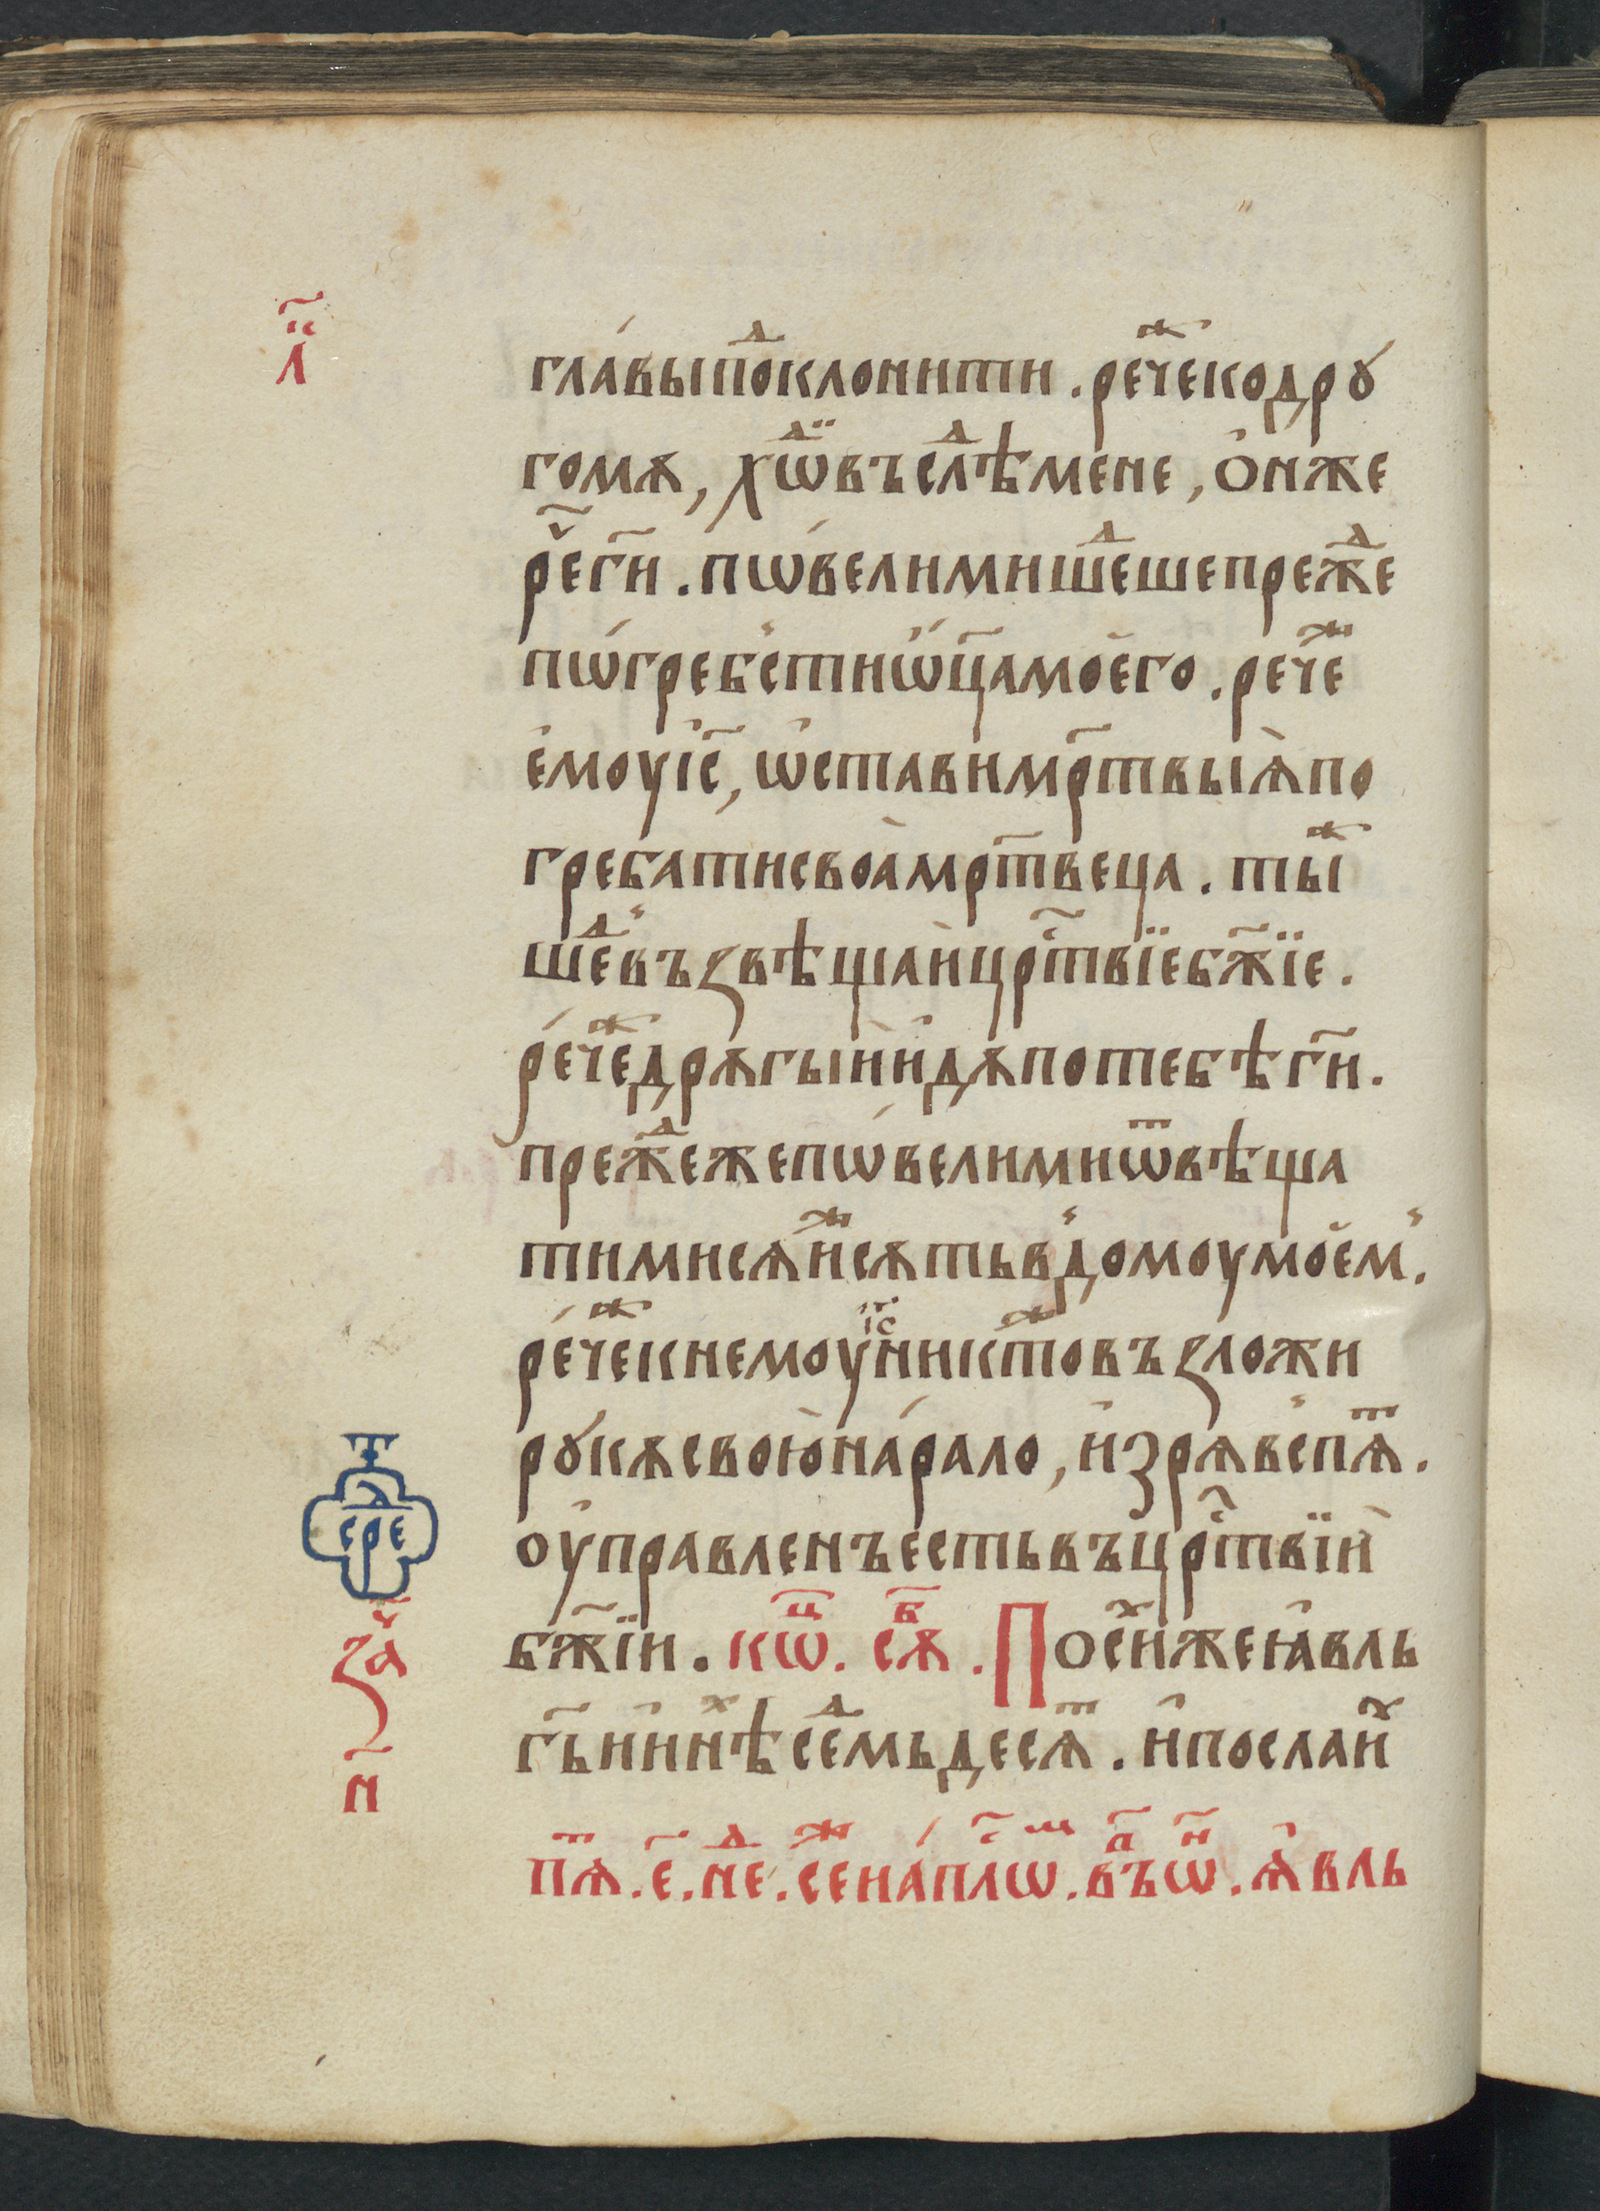 л҃
гла́выпоⷣклонити . реⷤчекодрꙋ
гомѫ , хѡⷣ̈въслⷣѣмене , о҆нже
рⷱ҇ег҃и . пѡ́велимишеⷣшепрежⷣе
пѡ́гребʼстиѡ҆ц҃амое҆го . речеⷤ
е҆моуі҆с҃ , ѡ҆ставимр҃твыѧ҆по
гребатисвоа҆мр҃твеца . тыⷤ
шеⷣвъꙁвѣщаи҆цр҇ⷭтвїебж҃їе .
ре́чеⷤдрѫгыи҆и҆дѫпотебѣг҃и .
прежⷣежепѡ́велимиѿвѣща
тимисѧиⷤсѫтьвʼдомоумое҆мʼ .
ре́чеⷤкнемоуі҆с҃никтⷤовъꙁложи
рꙋкѫсвою҆на́рало , и҆зрѧвʼспѧⷮ .
оу҆правленъестьвъцр҇ⷭтвїи҆
бж҃їи . кѡⷰ҇ . сѫⷠ . Посиⷯжеꙗ҆вль
г҃ьи҆и҆нⷯѣсеⷣмьдесѧⷮ . и҆послаиⷯ
ере
заⷱ҇
н҃
пѧⷮ . е҃ . неⷣ . сеⷤна́плⷭ҇ѡⷨ . въⷬ҇ѡⷩ҇ . ꙗ҆вль